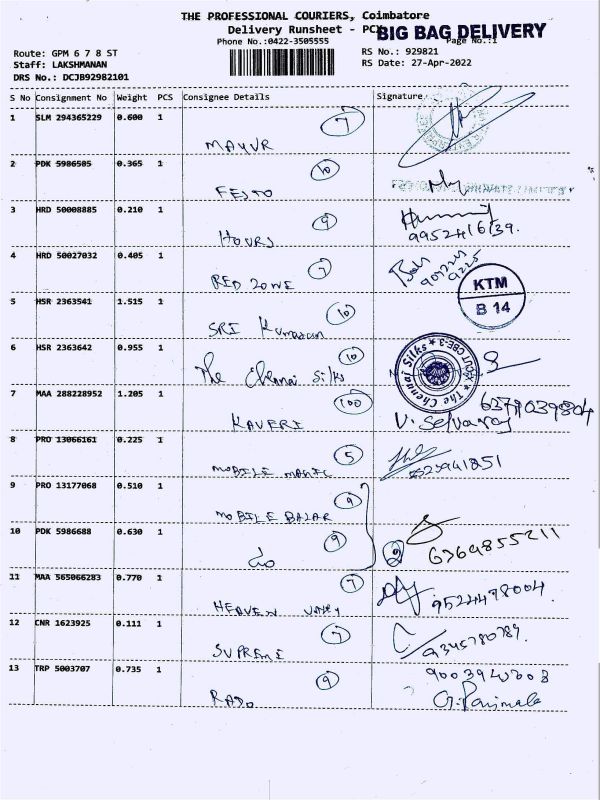 THE PROFESSIONAL COURIERS, Coimbatore
Delivery Runsheet - PCX BIG BAG DELIVERY
Phone No.:0422-3505555 Page No.:1
Route: GPM 6 7 8 ST RS No.: 929821
Staff: LAKSHMANAN RS Date: 27-Apr-2022
DRS No.: DCJB92982101
S No Consignment No Weight PCS Consignee Details Signature
1 SLM 294365229 0.600 1 7
MAYUR
2 PDK 5986505 0.365 1 10
FESTO
3 HRD 50008885 0.210 1 9
HOURS
4 HRD 50027032 0.405 1 7
RED ZONE
KTM
B 14
5 HSR 2363541 1.515 1 10
SRI Kumaran
6 HSR 2363642 0.955 1 10
The Chennai Silks
The Chennai Silks * CUT CBE-3
7 MAA 288228952 1.205 1 100
KAVERI V. Selvaraj 6379039804
8 PRO 13066161 0.225 1 5
MOBILE MAGIC
9 PRO 13177068 0.510 1 9
MOBILE BAZAR
10 PDK 5986688 0.630 1 9
do 2
11 MAA 565066283 0.770 1 7
HEAVEN 9524498004
12 CNR 1623925 0.111 1 7
SUPREME 9345780789
13 TRP 5003707 0.735 1 9
RADO G. Parimala